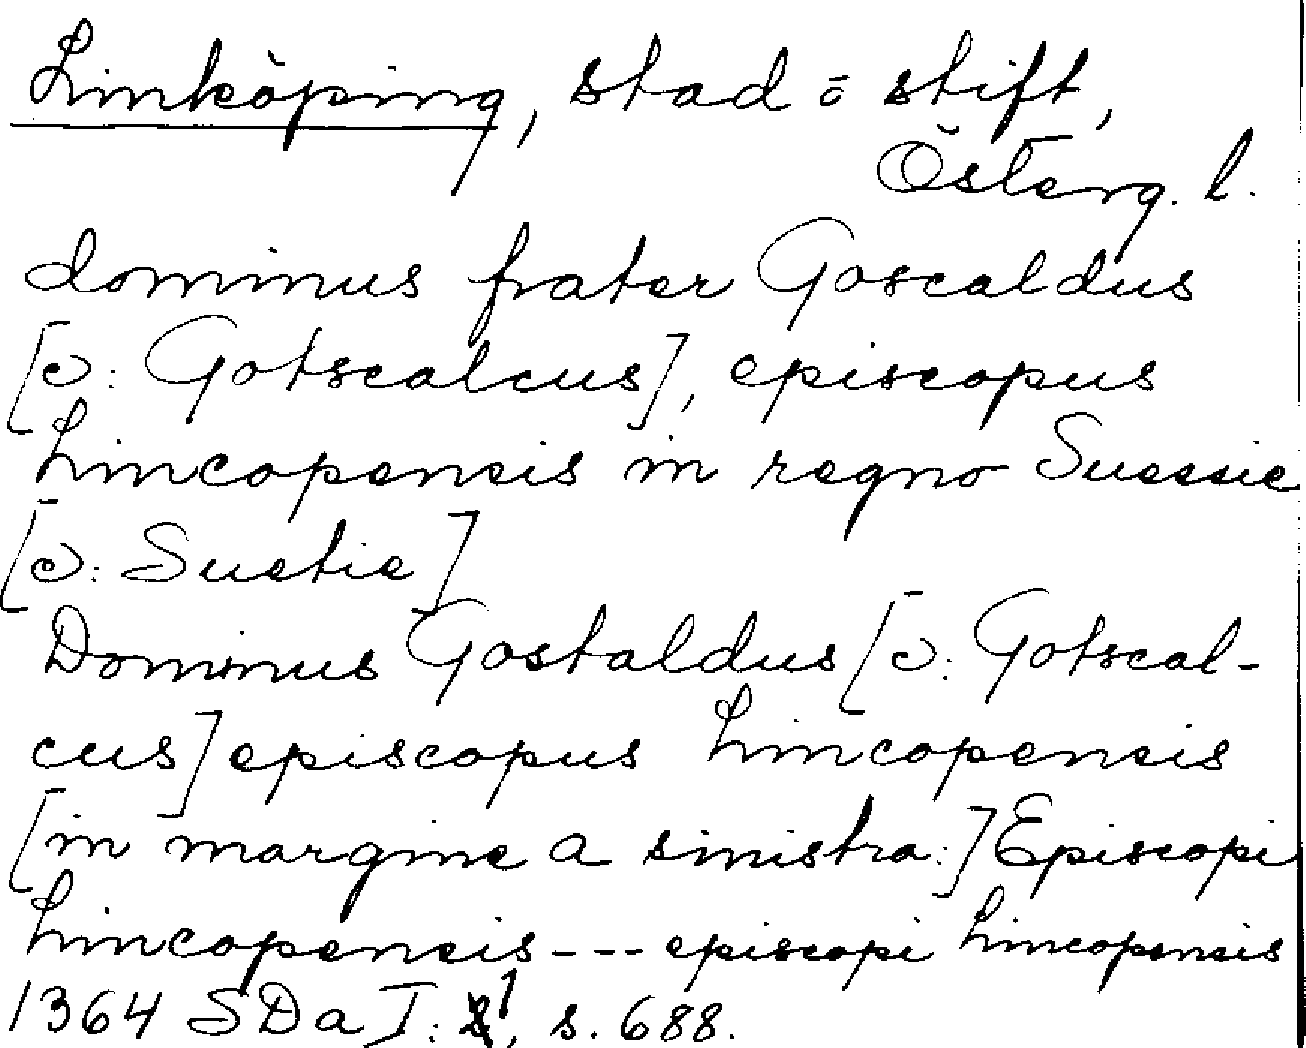 Linköping, stad o stift,
Österg. l.
dominus frater Goscaldus
[ɔ: Gotscalcus], episcopus
Lincopensis in regno Suessie
[ɔ: Suetie]
Dominus Gostaldus [ɔ: Gotscal-
cus] episcopus Lincopensis
[in margine a sinistra:] Episcopi
Lincopensis --- episcopi Lincopensis
1364 SDa I: 1, s. 688.